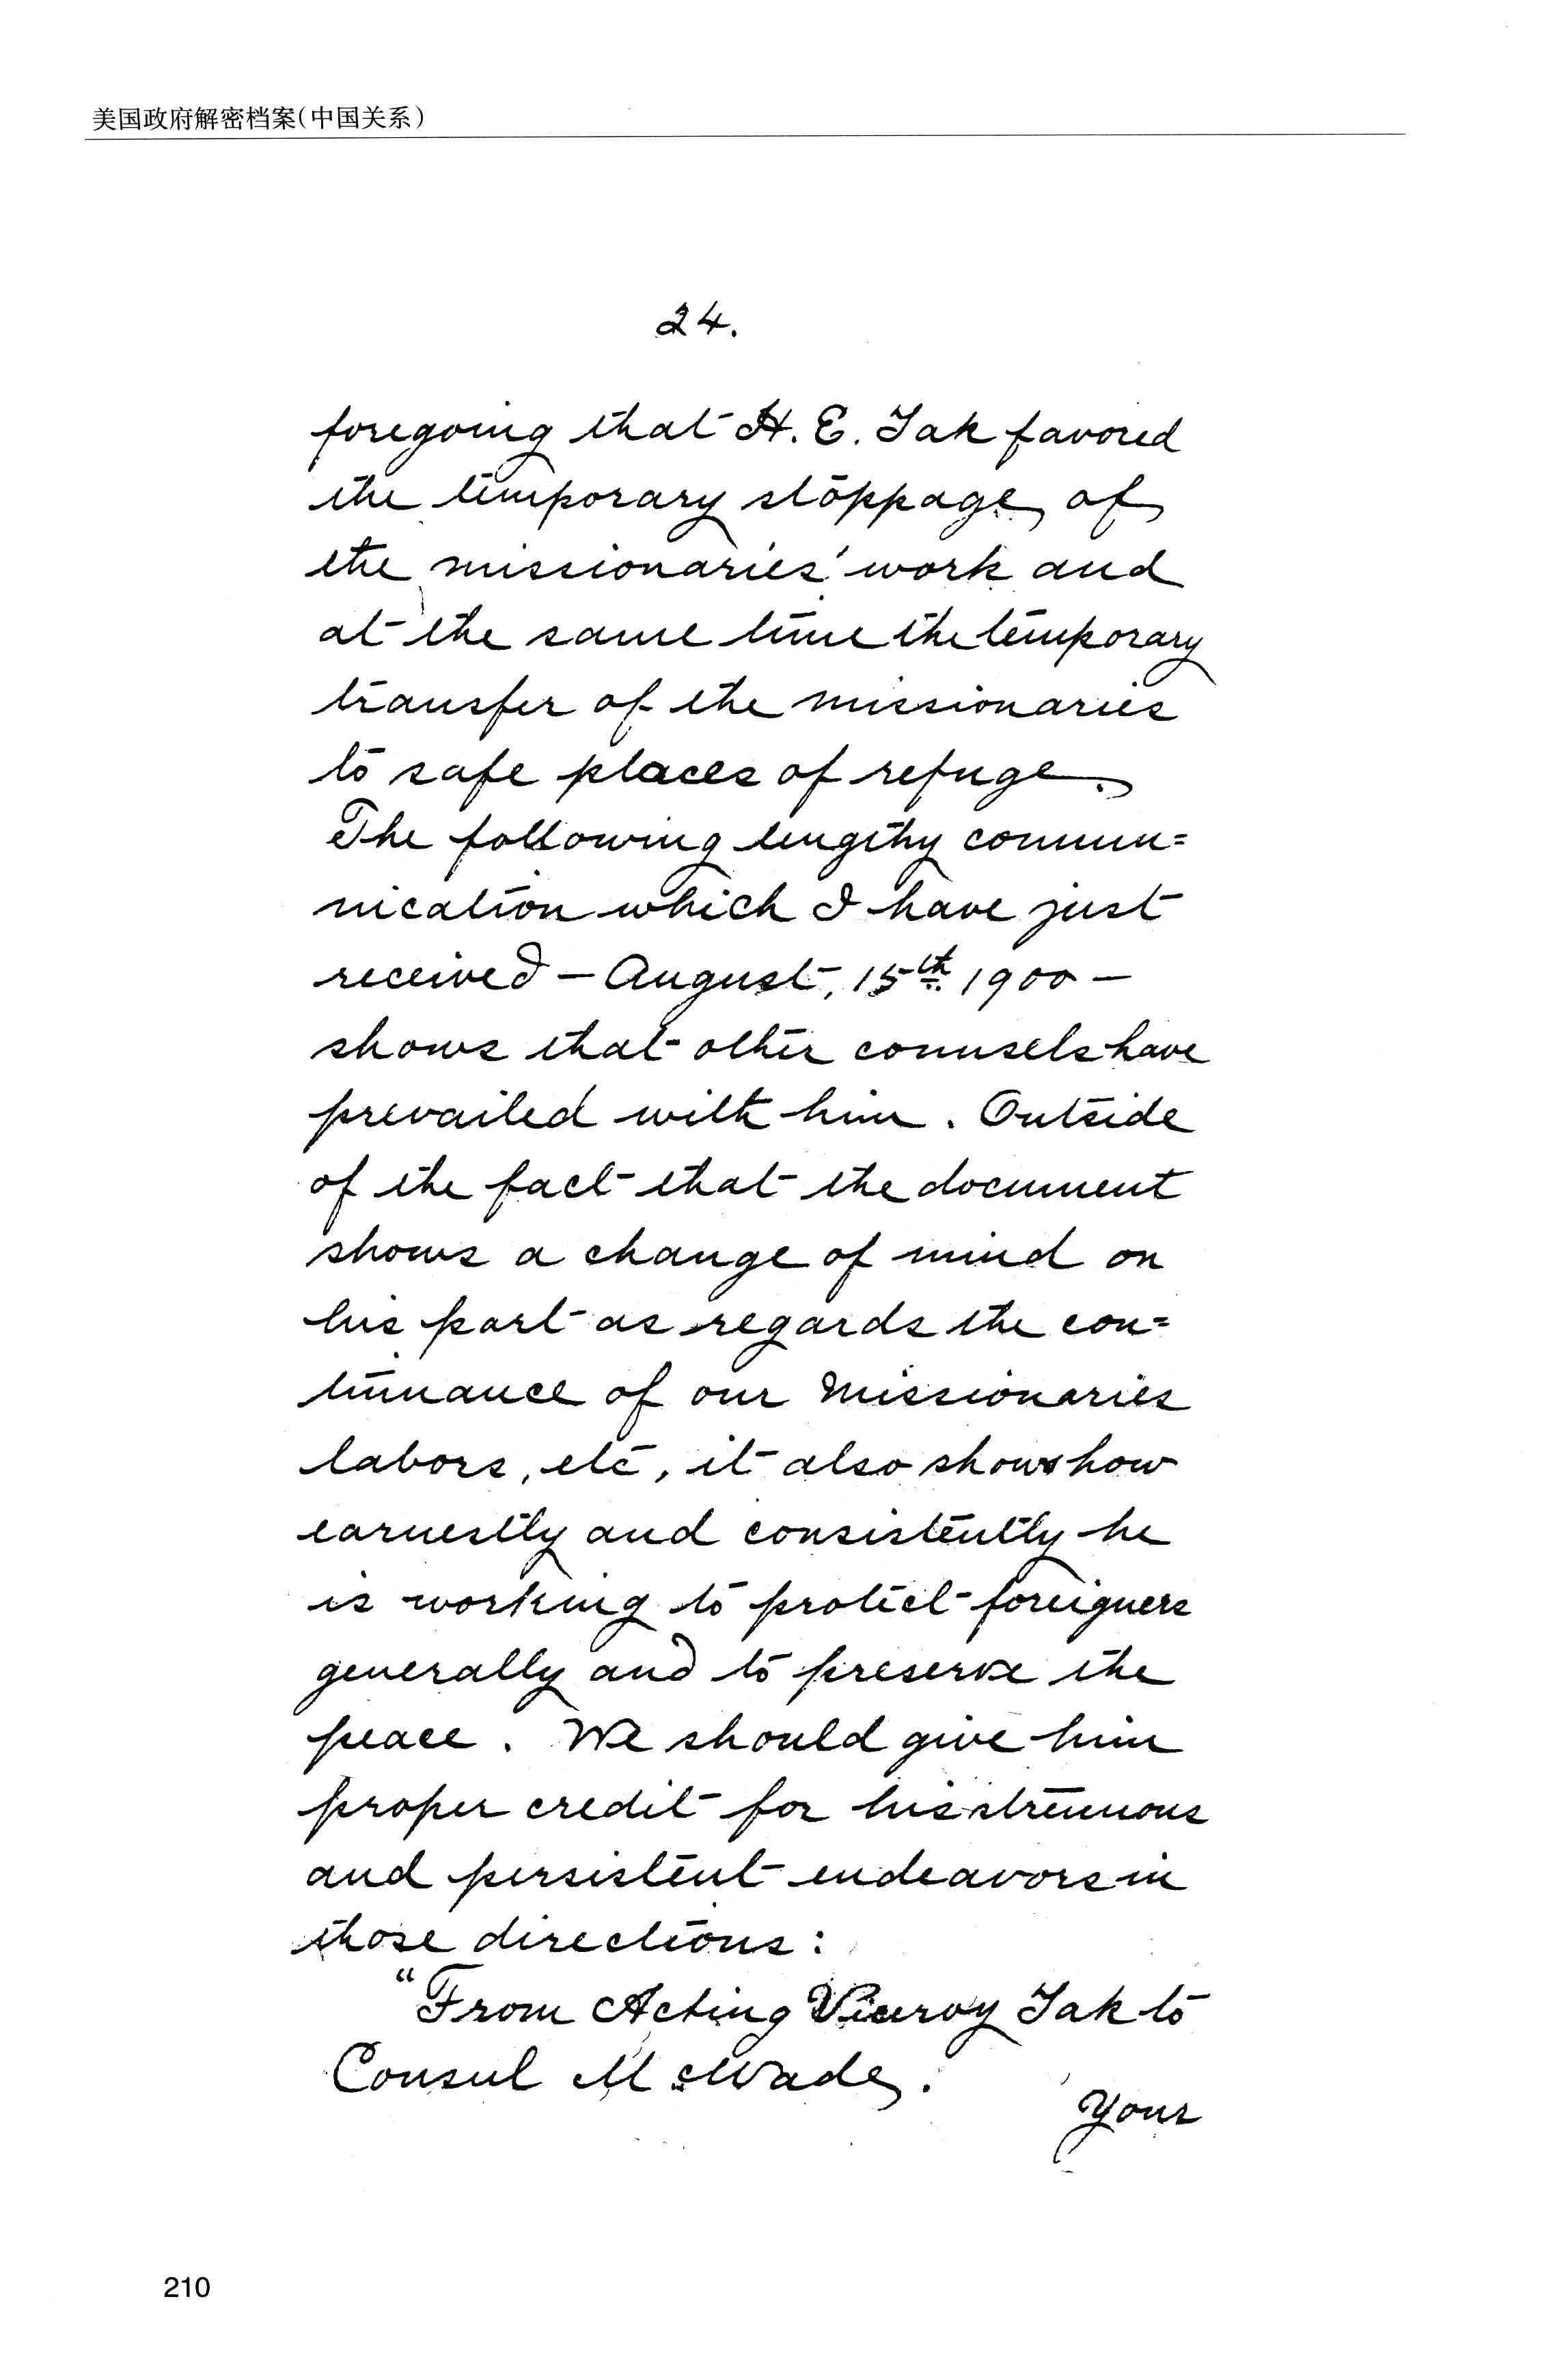 美国政府解密档案(中国关系)
24.
foregoing that H. E. Tak favored
the temporary stoppage of
the missionaries' work and
at the same time the temporary
transfer of the missionaries
to safe places of refuge.
The following lengthy commu=
nication which I have just
received – August, 15th 1900 –
shows that other counsels have
prevailed with him. Outside
of the fact that the document
shows a change of mind on
his part as regards the con=
tinuance of our missionaries
labors, etc, it also shows how
earnestly and consistently he
is working to protect foreigners
generally and to preserve the
peace. We should give him
proper credit for his strenuous
and persistent endeavors in
those directions:
"From Acting Viceroy Tak to
Consul McWade.
Your
210